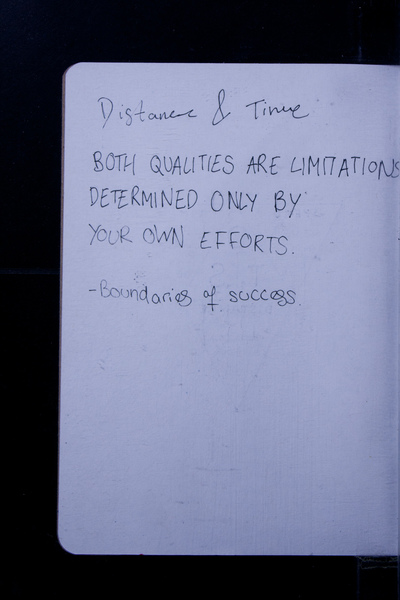 Distance & Time
BOTH QUALITIES ARE LIMITATIONS
DETERMINED ONLY BY
YOUR OWN EFFORTS.
-Boundaries of success.